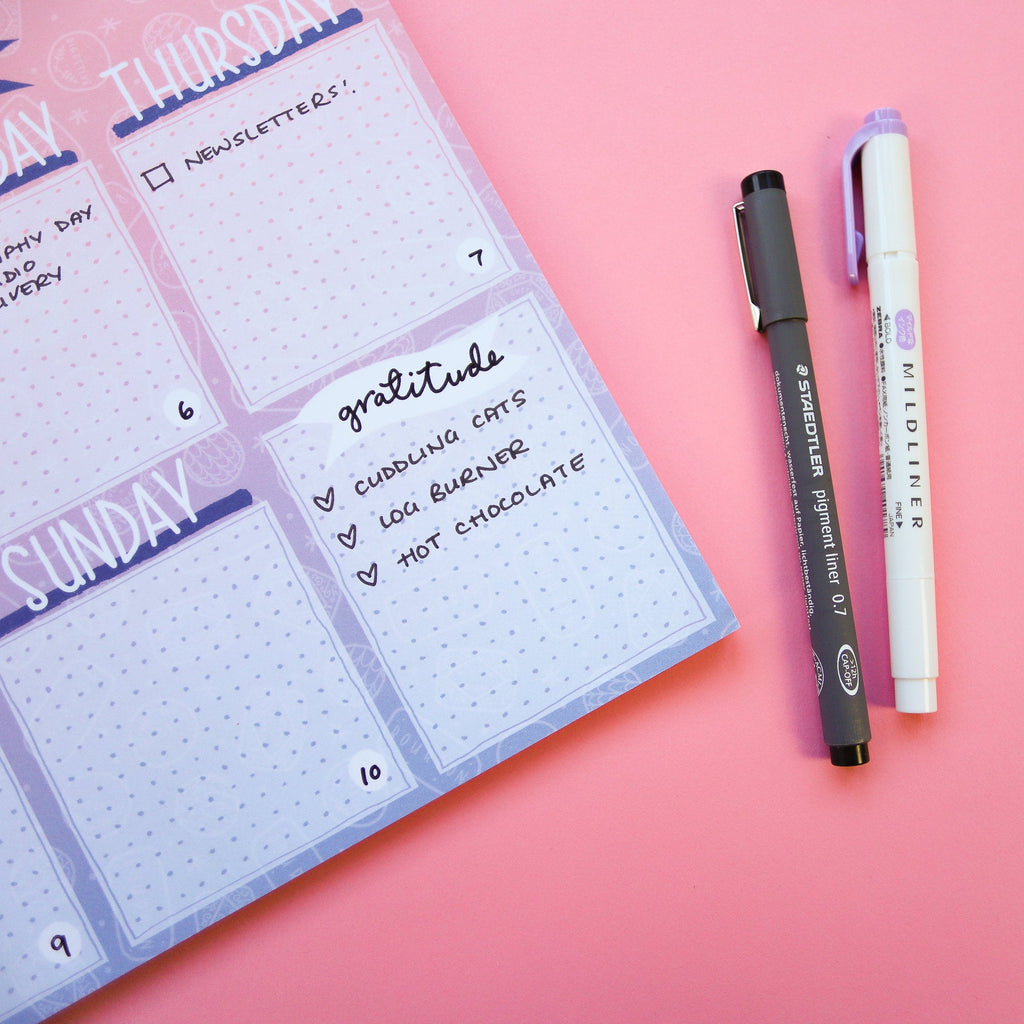 THURSDAY
NEWSLETTERS!.
7
DAY
PHY DAY
DIO
VERY
6
gratitude
CUDDLING CATS
LOG BURNER
HOT CHOCOLATE
SUNDAY
10
9
STAEDTLER pigment liner 0.7
dokumentenecht, wasserfest auf Papier, lichtbeständig,
>12h
CAP-OFF
MILDLINER
◀BOLD
ZEBRA
FINE▶
JAPAN